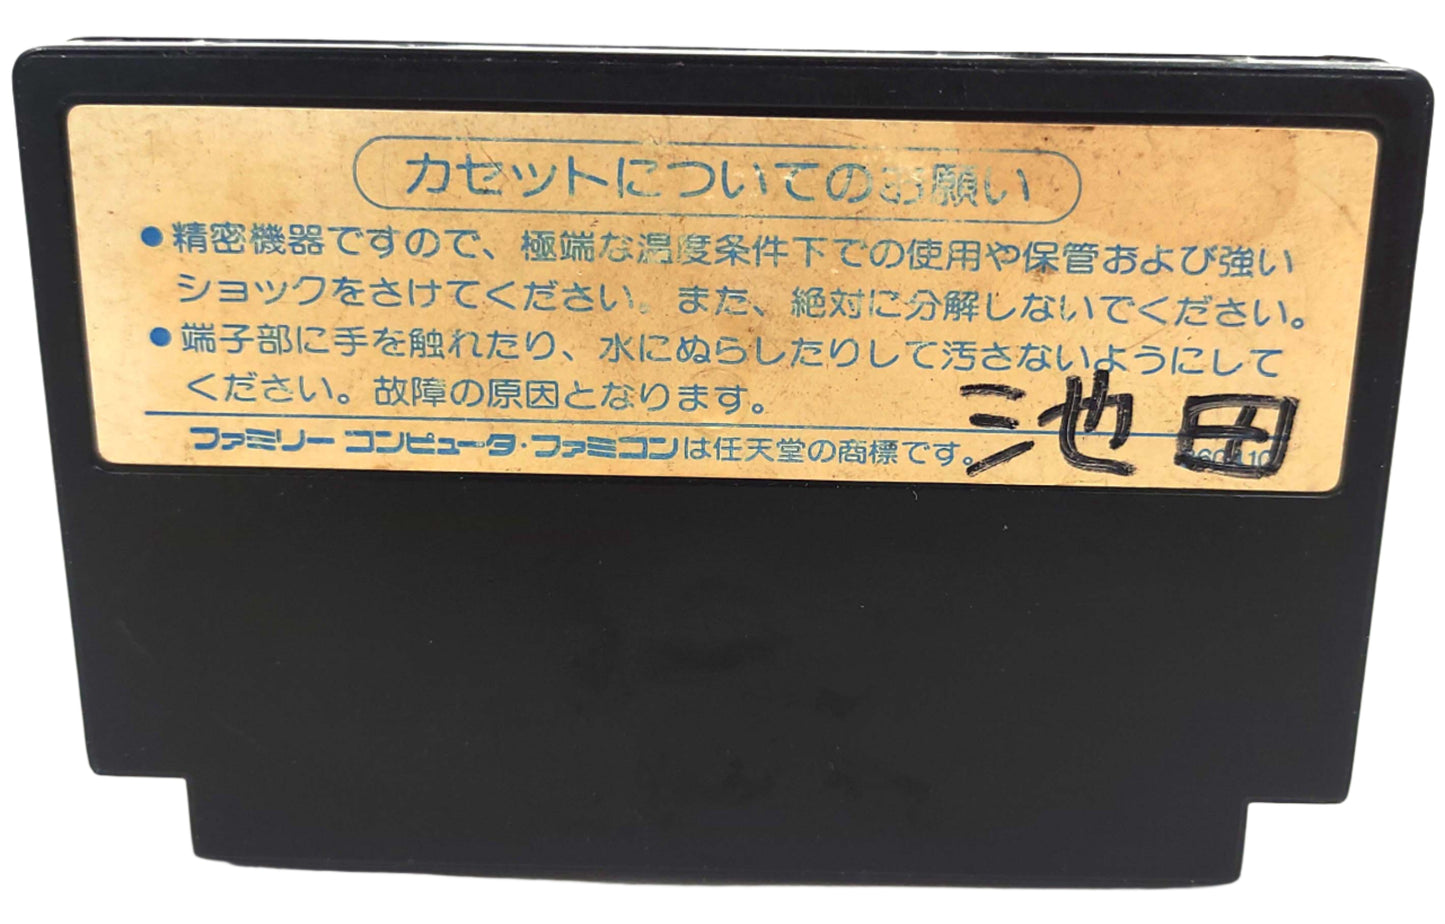 カセットについてのお願い
●精密機器ですので、極端な温度条件下での使用や保管および強い
ショックをさけてください。また、絶対に分解しないでください。
●端子部に手を触れたり、水にぬらしたりして汚さないようにして
ください。故障の原因となります。
ファミリーコンピュータ・ファミコンは任天堂の商標です。
池田